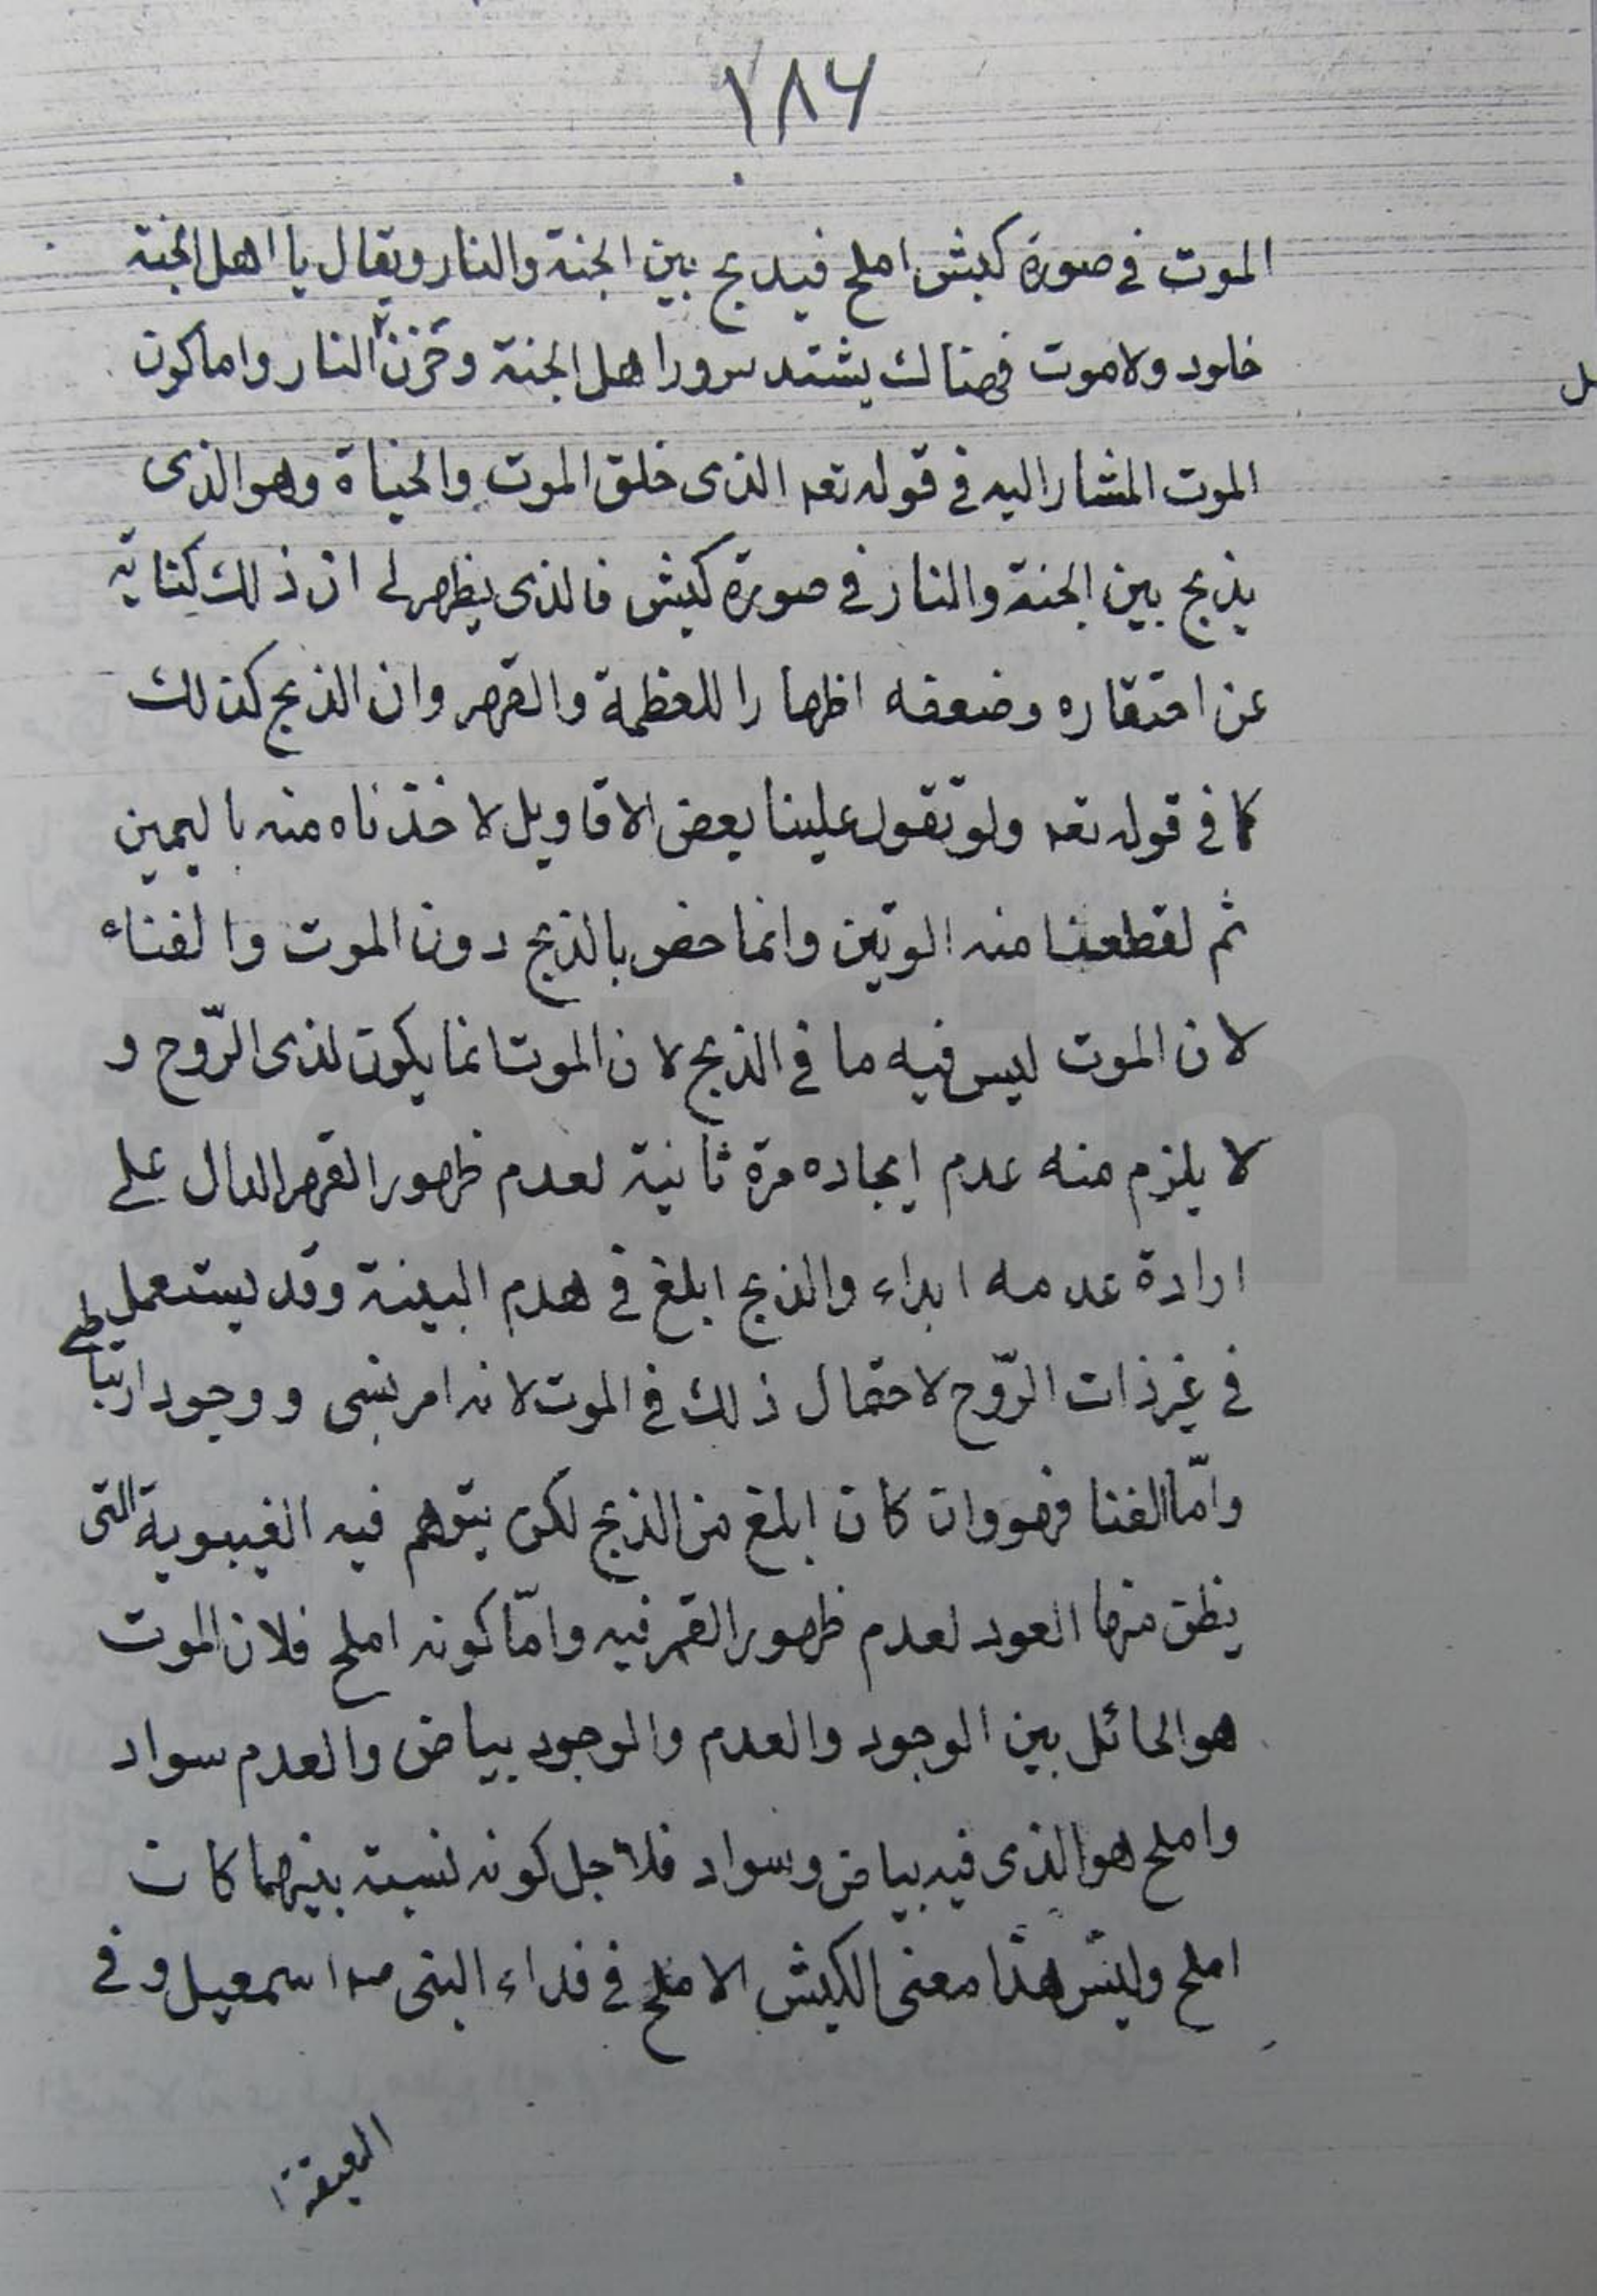 ١٨٦
الموت في صورة كبش املح فيذبح بين الجنة والنار ويقال يا اهل الجنة
خلود ولا موت فهنالك يشتد سرور اهل الجنة وحزن النار واما كون
الموت المشار اليه في قوله تعه الذى خلق الموت والحياة وهو الذى
يذبح بين الجنة والنار في صورة كبش فالذى يظهر لى ان ذلك كناية
عن احتقاره وضعفه اظهارا للعظمة والقهر وان الذبح كذلك
كما في قوله تعه ولو تقول علينا بعض الاقاويل لاخذناه منه باليمين
ثم لقطعنا منه الوتين وانما خص بالذبح دون الموت والفناء
لان الموت ليس فيه ما في الذبح لان الموت انما يكون لذى الرّوح و
لا يلزم منه عدم ايجاده مرة ثانية لعدم ظهور القهر الدال على
ارادة عدمه ابداء والذبح ابلغ في هدم البينة وقد يستعمل
في غير ذات الرّوح لاحتمال ذلك في الموت لانه امر نسى ووجود ارتباطى
وامّا الفنا فهو وان كان ابلغ من الذبح لكن يتوهم فيه الغيبوبة التى
يظن منها العود لعدم ظهور القهر فيه وامّا كونه املح فلان الموت
هو الحائل بين الوجود والعدم والوجود بياض والعدم سواد
واملح هو الذى فيه بياض وسواد فلاجل كونه نسبة بينهما كان
املح وليس هذا معنى الكبش الاملح في فداء النبى اسمعيل و في
العقيقة